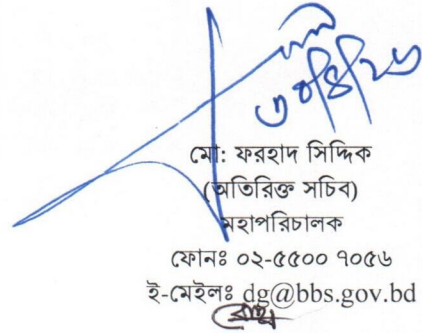 ৩০/৪/২৬
মো: ফরহাদ সিদ্দিক
(অতিরিক্ত সচিব)
মহাপরিচালক
ফোনঃ ০২-৫৫০০ ৭০৫৬
ই-মেইলঃ dg@bbs.gov.bd